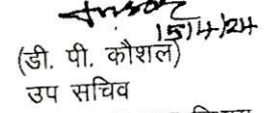 15/4/24
(डी. पी. कौशल)
उप सचिव